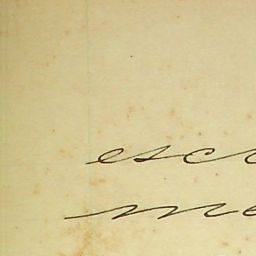 esc
me